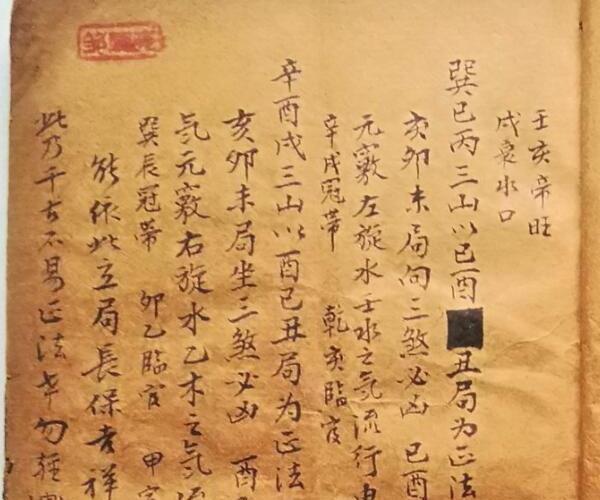 壬亥帝旺
戌衰水口
巽巳丙三山以巳酉丑局为正法
亥卯未局向三煞必凶 巳酉
元竅左旋水壬水之氣流行
辛戌冠帶 乾亥臨官
辛酉戌三山以酉巳丑局为正法
亥卯未局坐三煞必凶 酉
氣元竅右旋水乙木之氣
巽辰冠帶 卯乙臨官 甲
能依此立局長保吉祥
此乃千古不易正法幸勿輕